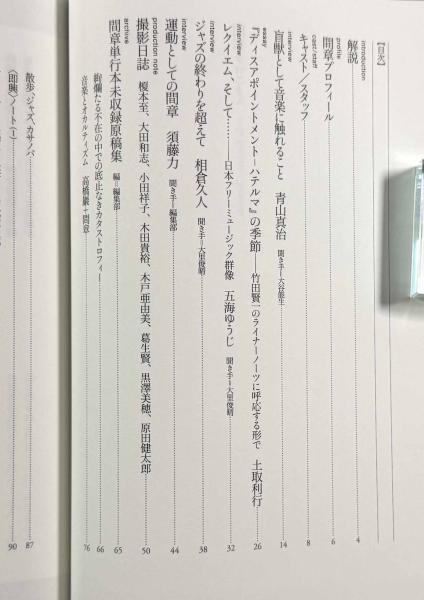 【目次】
introduction
解説 4
profile
間章プロフィール 6
cast/staff
キャスト/スタッフ 8
interview
盲獣として音楽に触れること 青山真治 聞き手=大谷能生 14
essay
『ディスアポイントメント−ハテルマ』の季節──竹田賢一のライナーノーツに呼応する形で 土取利行 26
interview
レクイエム、そして…… 日本フリーミュージック群像 五海ゆうじ 聞き手=大里俊晴 32
interview
ジャズの終わりを超えて 相倉久人 聞き手=大里俊晴 38
interview
運動としての間章 須藤力 聞き手=編集部 44
production note
撮影日誌 榎本至、大田和志、小田祥子、木田貴裕、木戸亜由美、葛生賢、黒澤美穂、原田健太郎 50
archive
間章単行本未収録原稿集 編=編集部 65
絢爛たる不在の中での底止なきカタストロフィー 66
音楽とオカルティズム 高橋巖+間章 76
散歩、ジャズ、カサノバ 87
〈即興〉ノート(1) 90